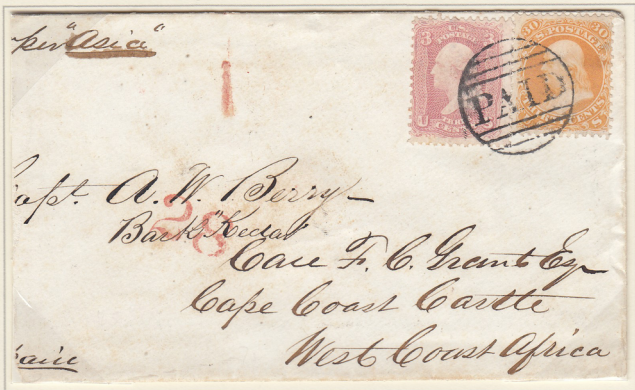 per "Asia"
1
3 3
U.S. POSTAGE
PAID
THREE CENTS
30 30
U.S. POSTAGE
CENTS
Capt. A. W. Berry
28
Bark "Kedar"
Care F. C. Grant Esq
Cape Coast Castle
West Coast Africa